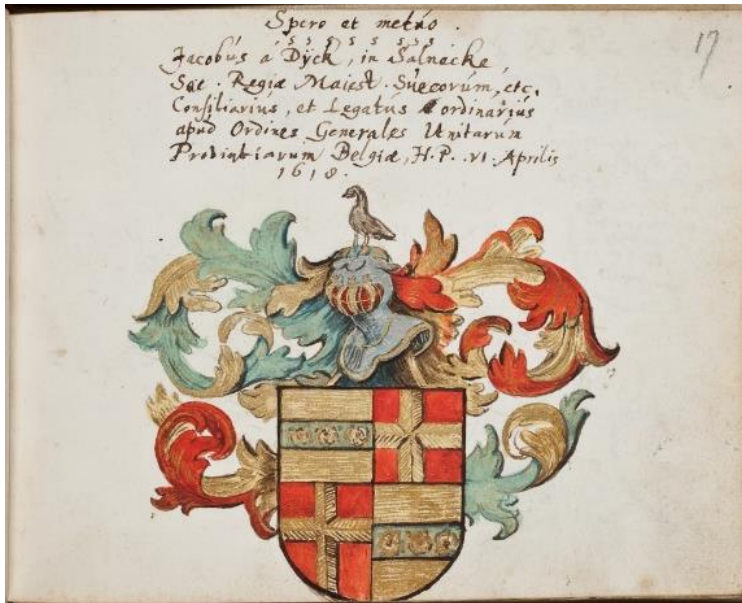 Spero et metuo.
s s s s s s s s s
Jacobús á Dÿck, in Salnecke,
Sae. Regiæ Maiest. Suecorúm, etc.
Consiliarius, et Legatús ordinariús
apúd Ordines Generales Unitarúm
Provintiarum Belgiæ, H.P. .VI. Aprilis
1618.
17